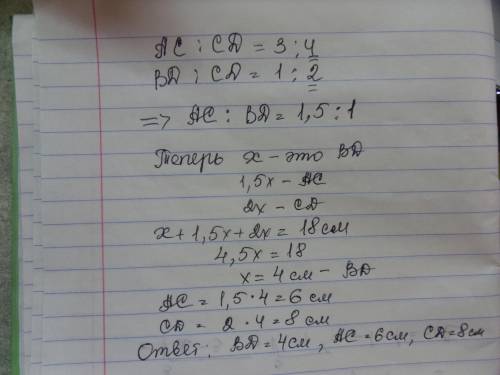 AC : CD = 3 : 4
BD : CD = 1 : 2
=> AC : BD = 1,5 : 1
Теперь x - это BD
1,5x - AC
2x - CD
x + 1,5x + 2x = 18 см
4,5x = 18
x = 4 см - BD
AC = 1,5 · 4 = 6 см
CD = 2 · 4 = 8 см
Ответ: BD = 4см, AC = 6см, CD = 8см